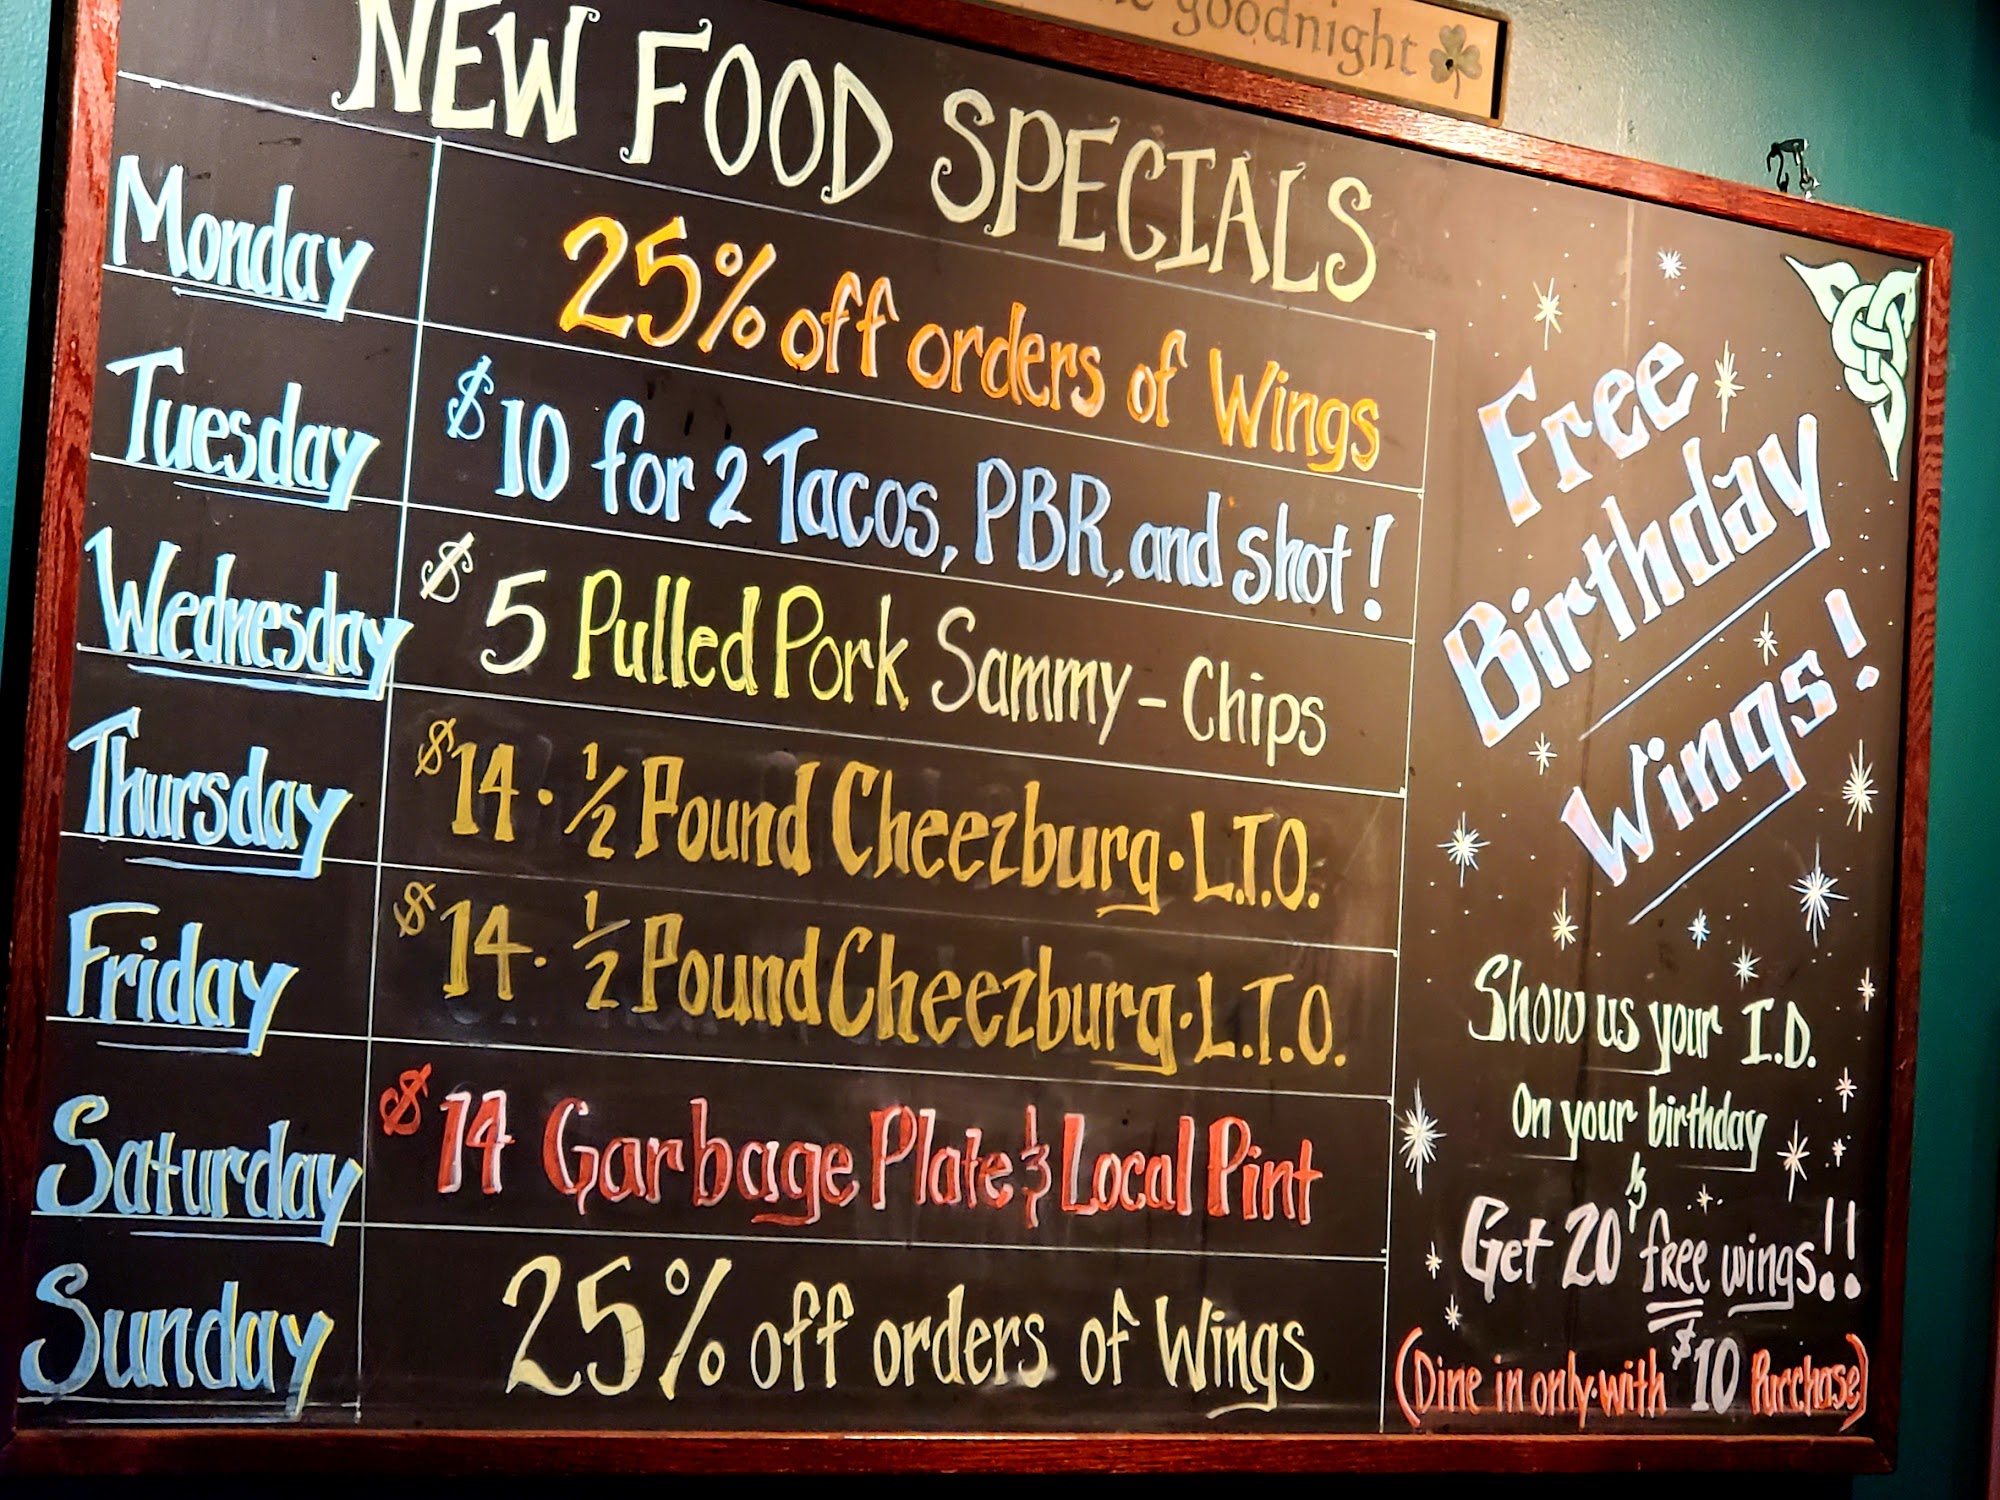 goodnight
NEW FOOD SPECIALS
Monday
25% off orders of Wings
Tuesday
$10 for 2 Tacos, PBR, and shot!
Wednesday
$5 Pulled Pork Sammy - Chips
Thursday
$14 · 1/2 Pound Cheezburg · L.T.O.
Friday
$14 · 1/2 Pound Cheezburg · L.T.O.
Saturday
$14 Garbage Plate & Local Pint
Sunday
25% off orders of Wings
Free
Birthday
Wings!
Show us your I.D.
On your birthday
&
Get 20 free wings!!
(Dine in only · with $10 Purchase)